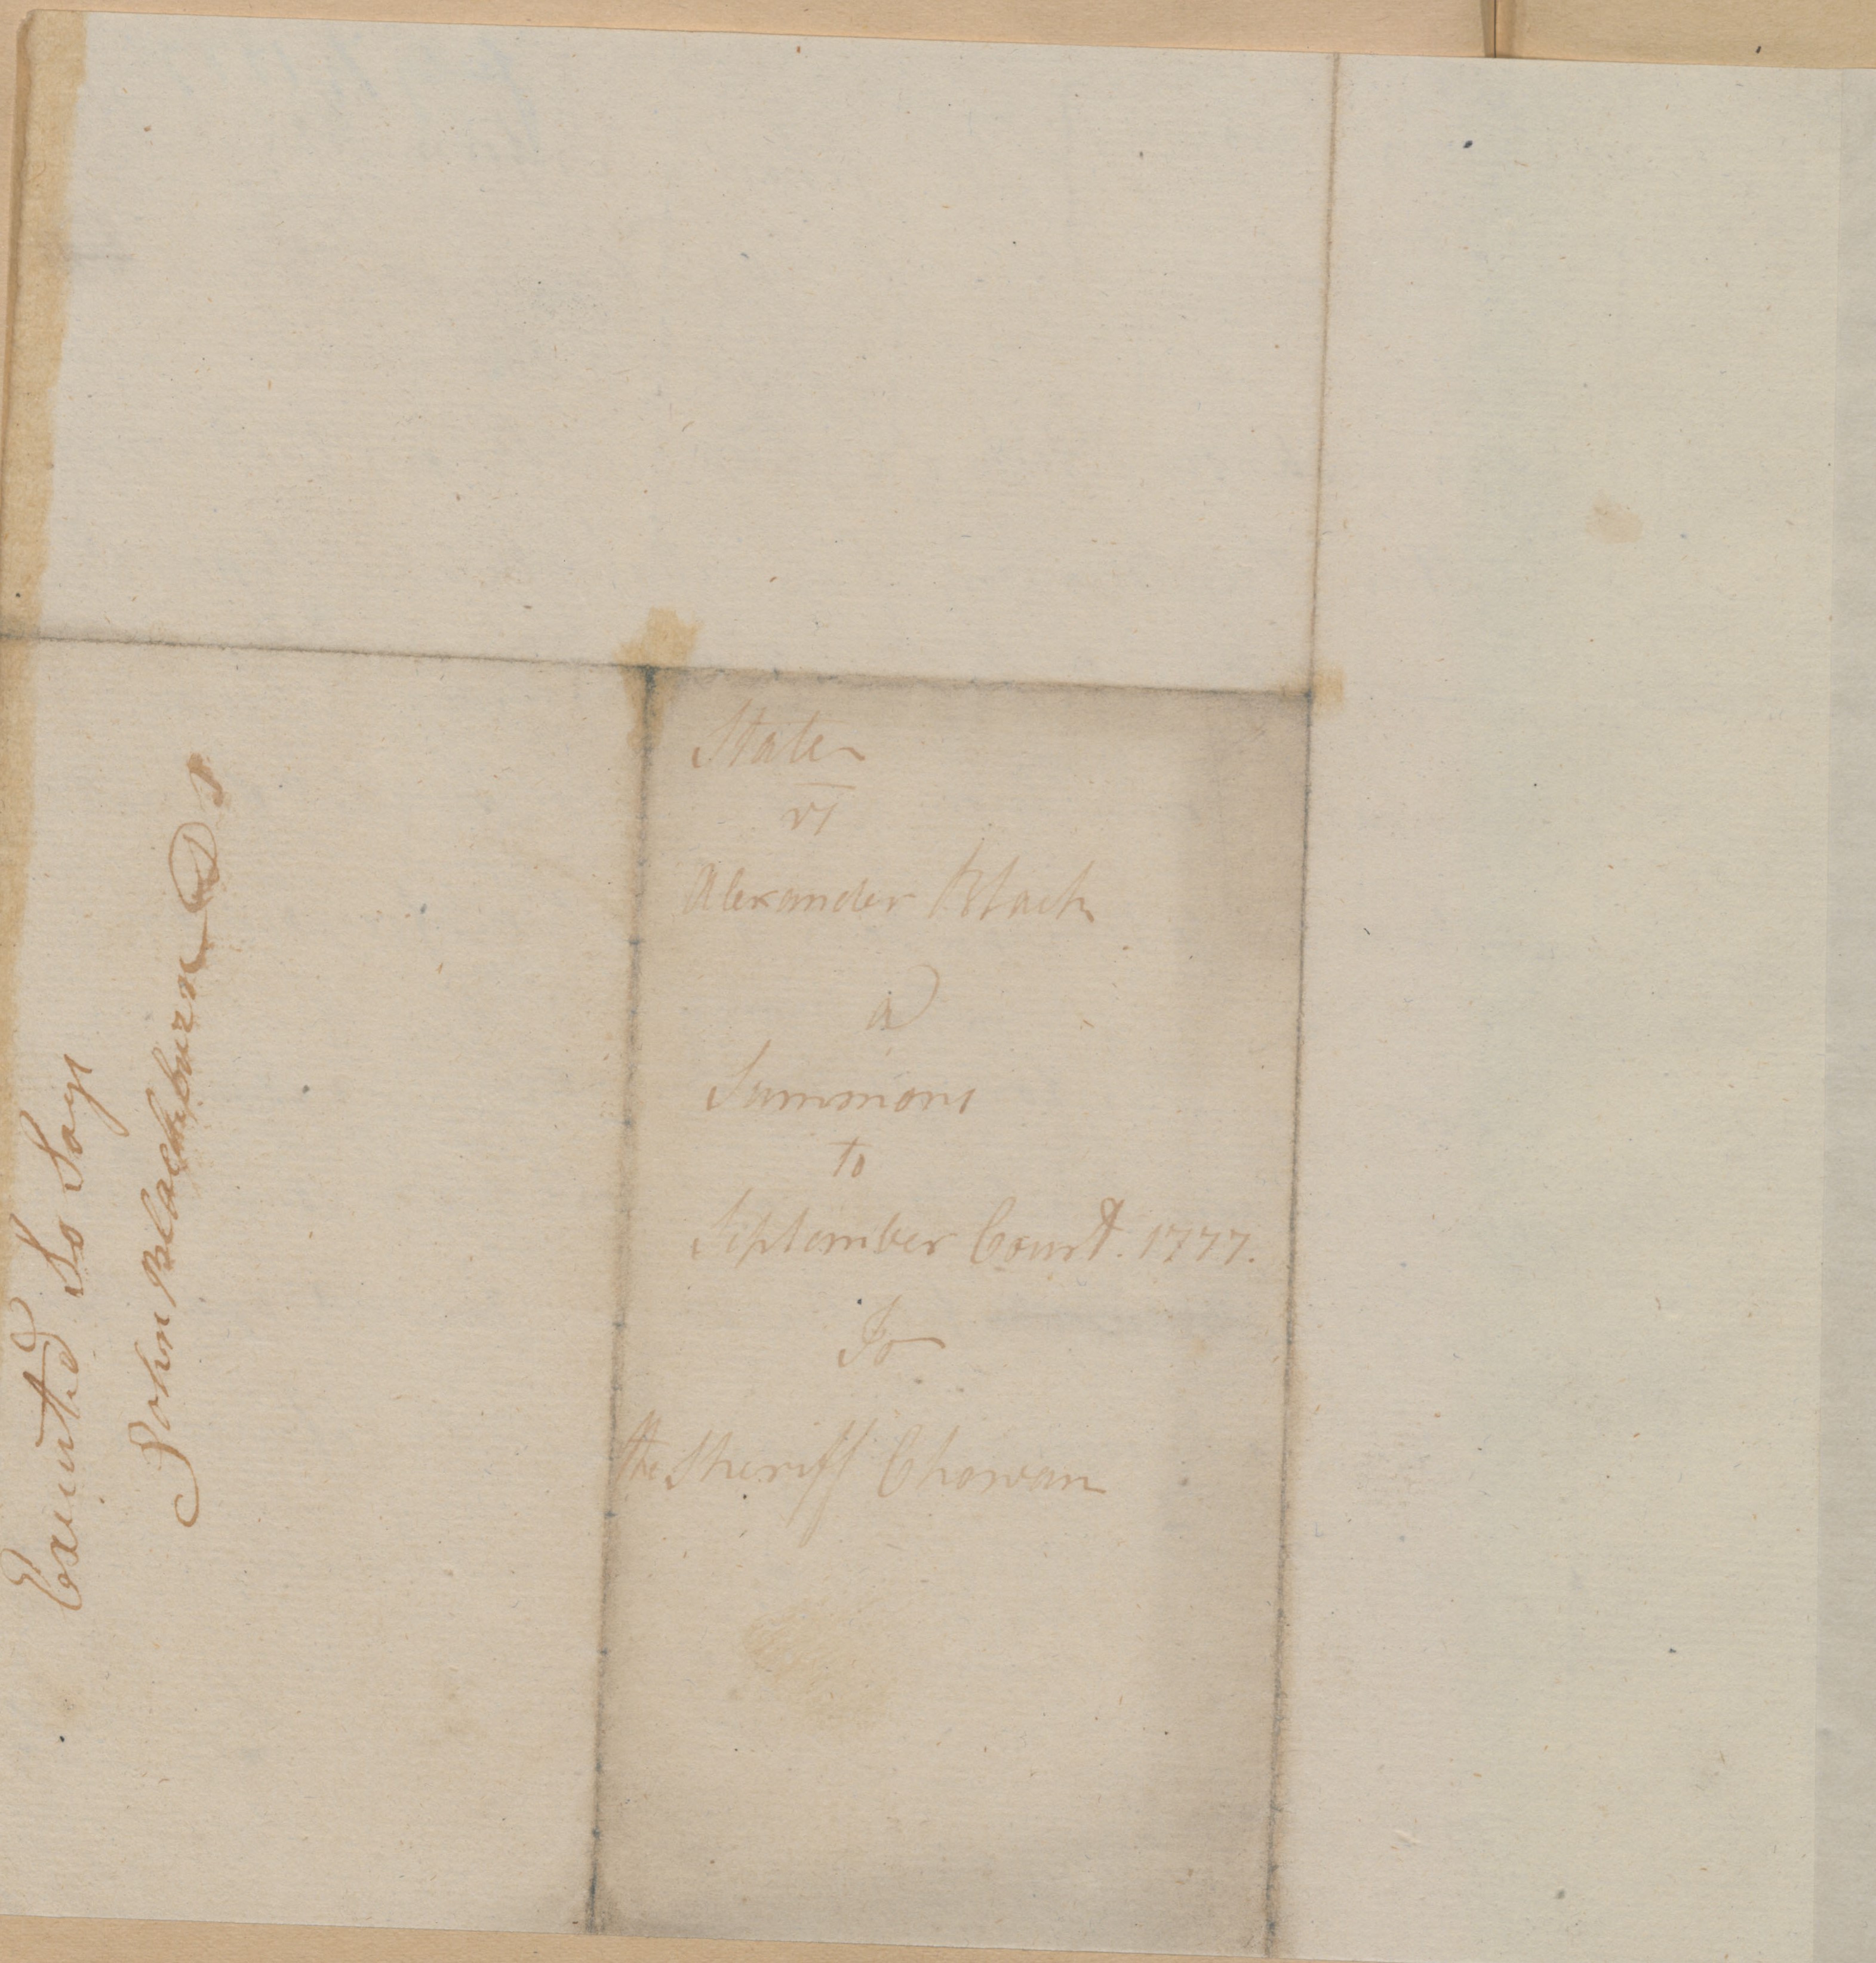 State
vs
Alexander Black
a
Summons
to
September Court. 1777.
To
the Sheriff Chowan
Executed So Says
John Blackburn D S